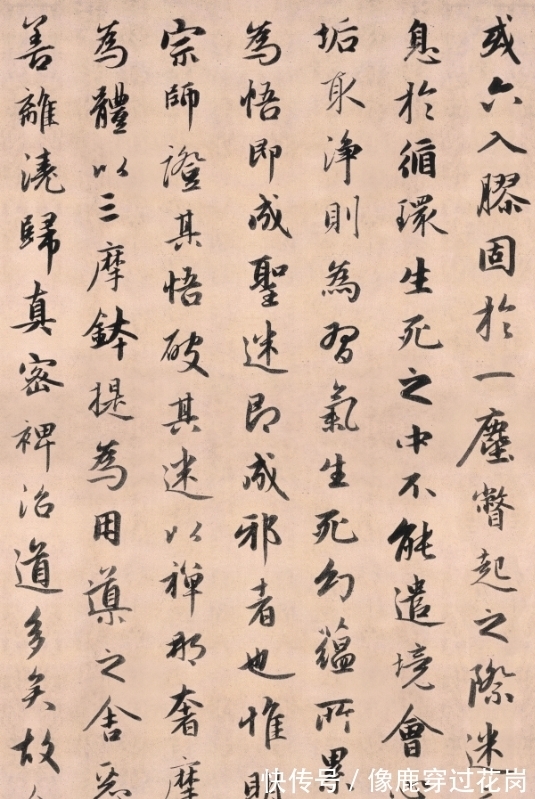 或六入膠固於一塵瞥起之際迷
息於循環生死之中不能遣境會心
垢取淨則為習氣生死幻蘊所累
為悟即成聖迷即成邪者也惟明
宗師證其悟破其迷以禪那奢摩
為體以三摩鉢提為用導之舍惡
善離澆歸真密裨治道多矣故
快传号/像鹿穿过花岗